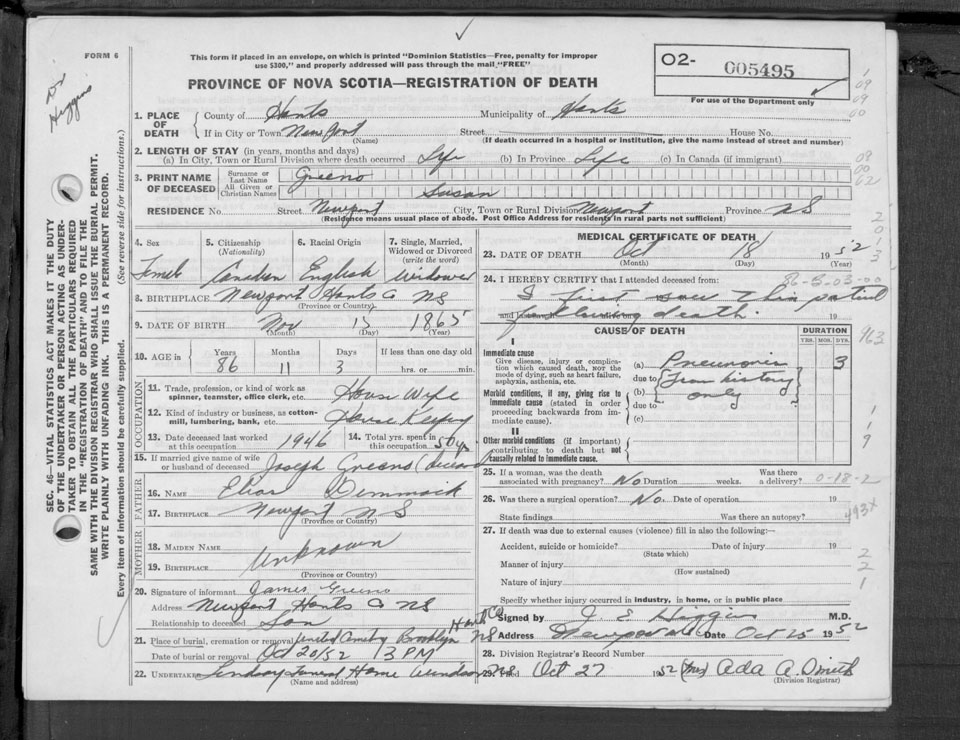 FORM 6
Dr Higgins
This form if placed in an envelope, on which is printed "Dominion Statistics—Free, penalty for improper
use $300," and properly addressed will pass through the mail "FREE"
PROVINCE OF NOVA SCOTIA—REGISTRATION OF DEATH
O2- 005495
For use of the Department only
SEC. 46—VITAL STATISTICS ACT MAKES IT THE DUTY
OF THE UNDERTAKER OR PERSON ACTING AS UNDER-
TAKER TO OBTAIN ALL THE PARTICULARS REQUIRED
IN THE "REGISTRATION OF DEATH" AND TO FILE THE
SAME WITH THE DIVISION REGISTRAR WHO SHALL ISSUE THE BURIAL PERMIT.
WRITE PLAINLY WITH UNFADING INK. THIS IS A PERMANENT RECORD.
Every item of information should be carefully supplied. (See reverse side for instructions.)
1. PLACE OF DEATH
County of Hants Municipality of Hants
If in City or Town Newport Street House No.
(Name) (If death occurred in a hospital or institution, give the name instead of street and number)
2. LENGTH OF STAY (in years, months and days)
(a) In City, Town or Rural Division where death occurred Life (b) In Province Life (c) In Canada (if immigrant)
3. PRINT NAME OF DECEASED
Surname or Last Name Greeno
All Given or Christian Names Susan
RESIDENCE No. Street Newport City, Town or Rural Division Newport Province NS
(Residence means usual place of abode. Post Office Address for residents in rural parts not sufficient)
4. Sex 5. Citizenship (Nationality) 6. Racial Origin 7. Single, Married, Widowed or Divorced (write the word)
Female Canadian English Widower
8. BIRTHPLACE Newport Hants Co NS
(Province or Country)
9. DATE OF BIRTH Nov 15 1865
(Month) (Day) (Year)
10. AGE in Years Months Days If less than one day old
86 11 3 hrs. or min.
OCCUPATION
11. Trade, profession, or kind of work as spinner, teamster, office clerk, etc. House Wife
12. Kind of industry or business, as cotton-mill, lumbering, bank, etc. House Keeping
13. Date deceased last worked at this occupation 1946 14. Total yrs. spent in this occupation 50 yrs
15. If married give name of wife or husband of deceased Joseph Greeno (deceased)
FATHER
16. NAME Elias Dimmock
17. BIRTHPLACE Newport NS
(Province or Country)
MOTHER
18. MAIDEN NAME Unknown
19. BIRTHPLACE
(Province or Country)
20. Signature of informant James Greeno
Address Newport Hants Co NS
Relationship to deceased Son
21. Place of burial, cremation or removal United Brooklyn Hants Co NS
Date of burial or removal Oct 20/52 3 PM
22. UNDERTAKER Lindsay Funeral Home Windsor NS
(Name and address)
MEDICAL CERTIFICATE OF DEATH
23. DATE OF DEATH Oct 18 1952
(Month) (Day) (Year)
24. I HEREBY CERTIFY that I attended deceased from:
86-B-03-00
I first saw this patient
following death. 19
CAUSE OF DEATH DURATION
YRS. MOS. DYS.
I
Immediate cause
Give disease, injury or complication which caused death, NOT the mode of dying, such as heart failure, asphyxia, asthenia, etc.
(a) Pneumonia 3
due to From history
Morbid conditions, if any, giving rise to immediate cause (stated in order proceeding backwards from immediate cause).
(b) only
due to
(c)
II
Other morbid conditions (if important) contributing to death but not causally related to immediate cause.
25. If a woman, was the death associated with pregnancy? No Duration weeks. Was there a delivery? 0-18-2
26. Was there a surgical operation? No. Date of operation 19
State findings Was there an autopsy? 493X
27. If death was due to external causes (violence) fill in also the following:—
Accident, suicide or homicide? Date of injury 19
(State which)
Manner of injury
(How sustained)
Nature of injury
Specify whether injury occurred in industry, in home, or in public place
Signed by J E Higgins M.D.
Address Newport Date Oct 25 1952
28. Division Registrar's Record Number
29. Filed Oct 27 1952 (Mrs) Ada A. Smith
(Division Registrar)